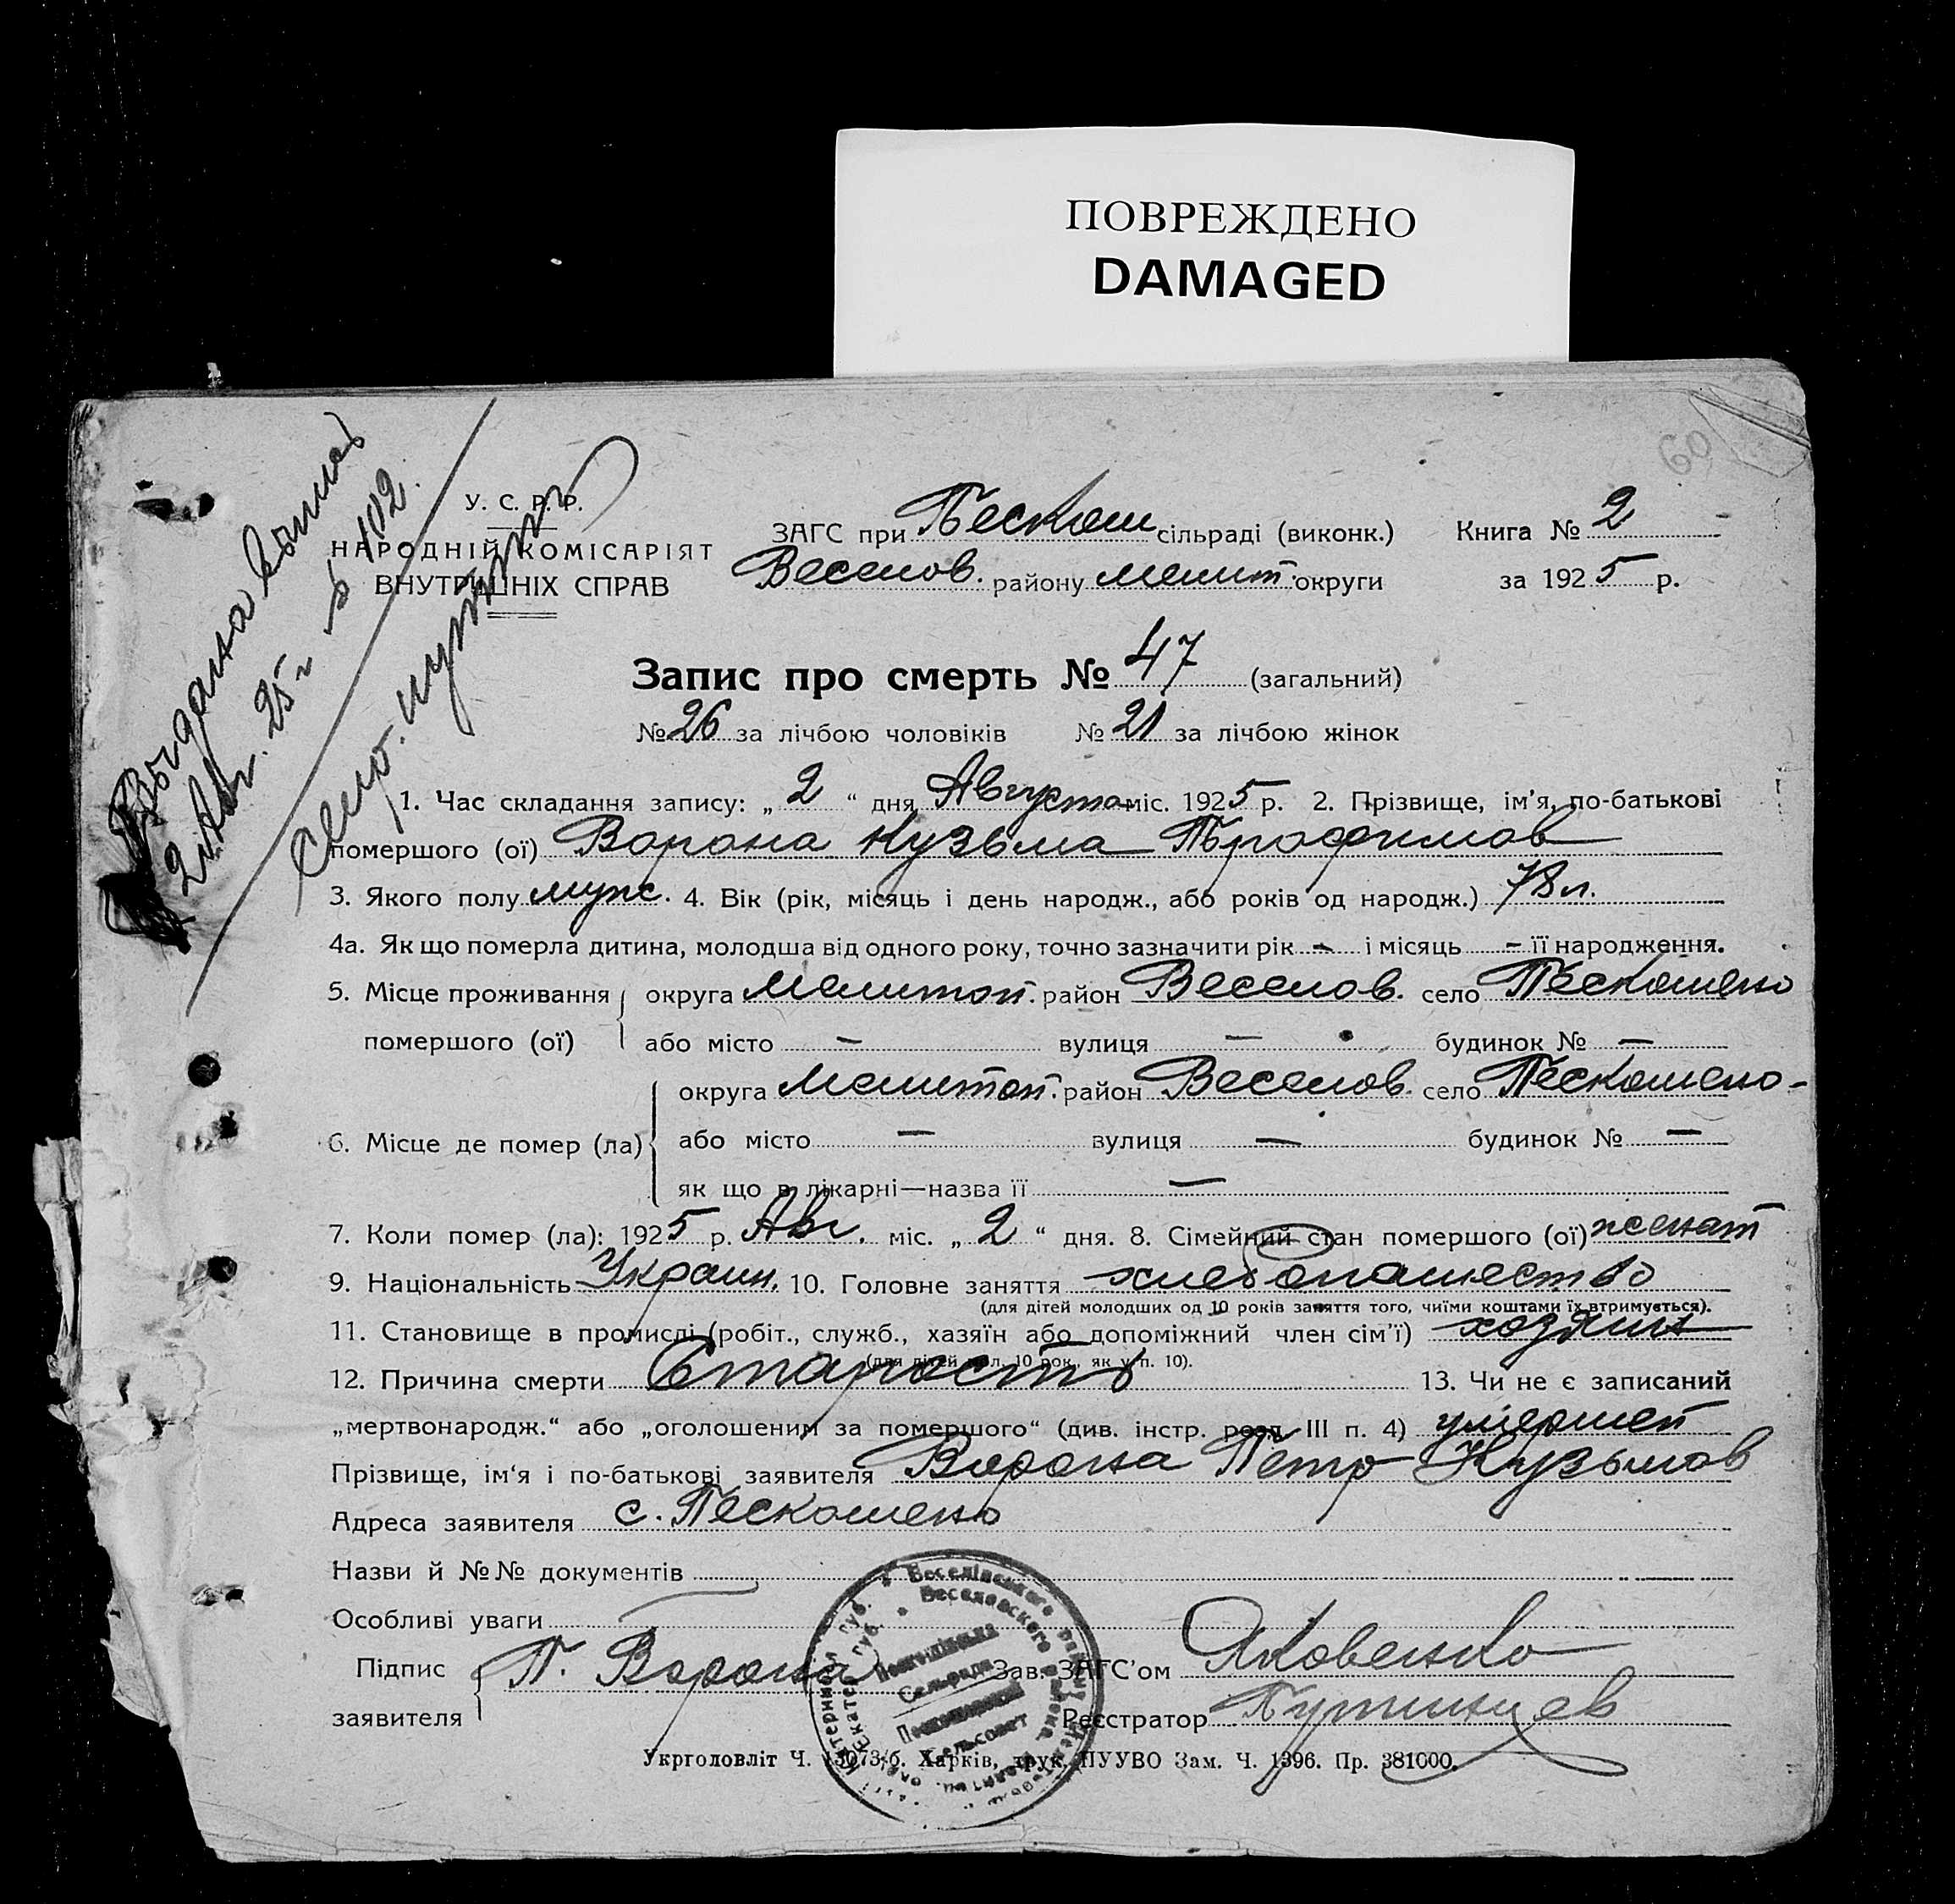 ПОВРЕЖДЕНО
DAMAGED
60
Выдана выпись
2 Авг. 25 г № 102.
У. С. Р. Р.
НАРОДНІЙ КОМІСАРІЯТ
ВНУТРІШНІХ СПРАВ
ЗАГС при Пескош сільраді (виконк.) Книга № 2
Веселов. району мелит. округи за 1925 р.
Запис про смерть № 47 (загальний)
№ 26 за лічбою чоловіків № 21 за лічбою жінок
1. Час складання запису: „ 2 “ дня Августа міс. 1925 р. 2. Прізвище, ім’я, по-батькові
помершого (ої) Варона Кузьма Трофимов
3. Якого полу мужс. 4. Вік (рік, місяць і день народж., або років од народж.) 78 л.
4а. Як що померла дитина, молодша від одного року, точно зазначити рік – і місяць – її народження.
5. Місце проживання округа Мелитоп. район Веселов. село Пескошено
помершого (ої) або місто — вулиця — будинок № —
округа Мелитоп. район Веселов. село Пескошено-
6. Місце де помер (ла) або місто — вулиця — будинок № —
як що в лікарні—назва її —
7. Коли помер (ла): 1925 р. Авг. міс. „ 2 “ дня. 8. Сімейний стан помершого (ої) женат
9. Національність Украин. 10. Головне заняття хлебопашество
(для дітей молодших од 10 років заняття того, чиїми коштами їх втримується).
11. Становище в промислі (робіт., служб., хазяїн або допоміжний член сім’ї) хозяин
(для дітей мол. 10 рок., як у п. 10).
12. Причина смерти Старость 13. Чи не є записаний
„мертвонародж.“ або „оголошеним за помершого“ (див. інстр. розд. III п. 4) умершей
Прізвище, ім‘я і по-батькові заявителя Варона Петр Кузьмов
Адреса заявителя с. Пескошено
Назви й №№ документів
Особливі уваги
Підпис П. Варона Зав. ЗАГС’ом Яковенко
заявителя Реєстратор
Веселівського
Веселовского
Сельрада
Сельсовет
Укрголовліт Ч. 13073/б. Харків, друк. ПУУВО Зам. Ч. 1396. Пр. 381000.